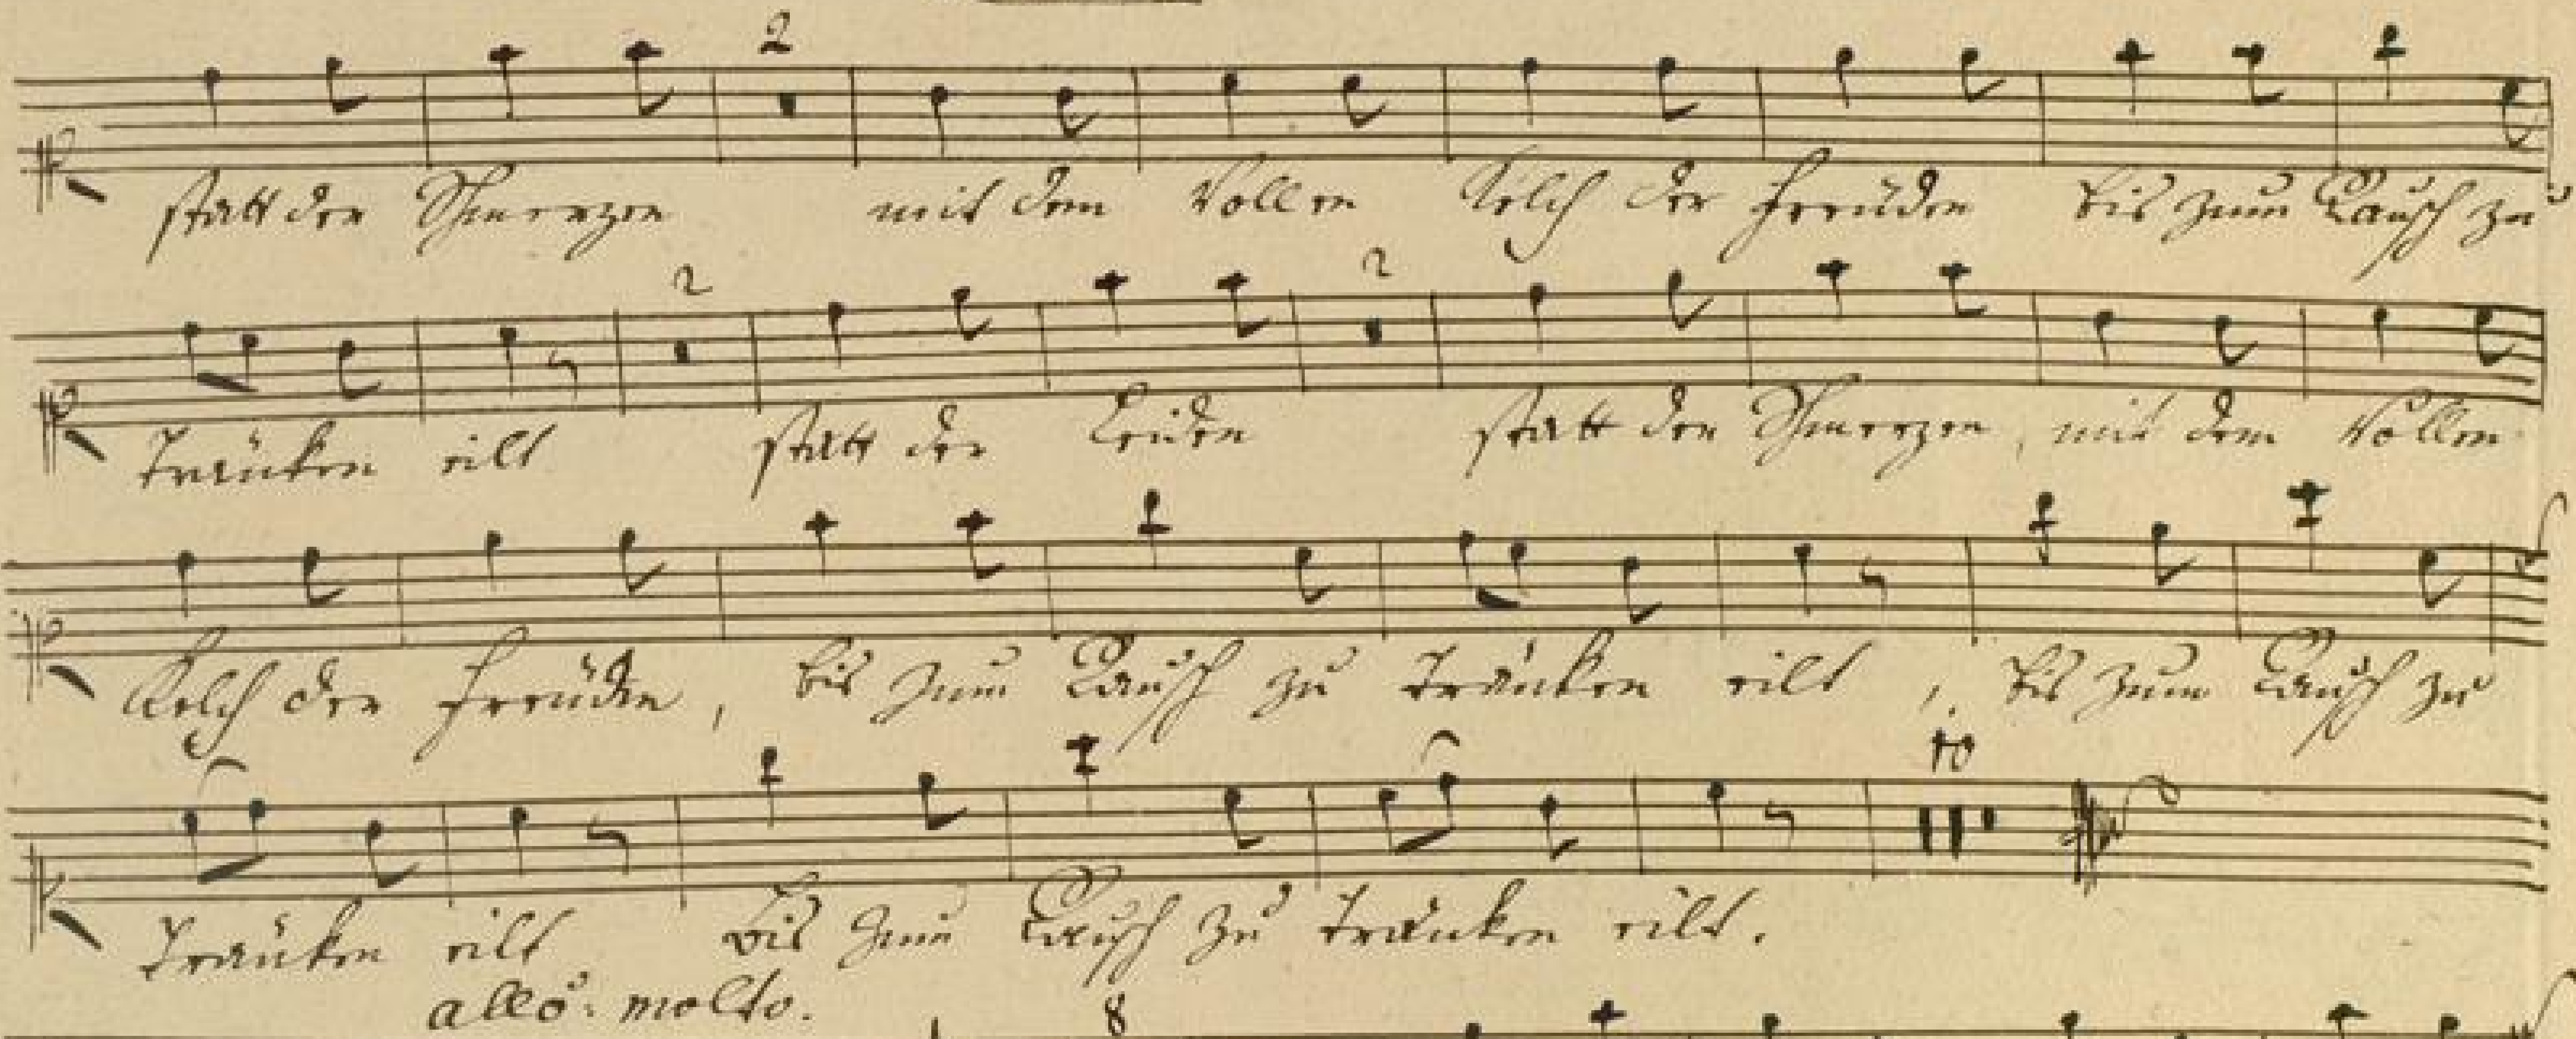 2
statt der Schmerzen mit dem Vollen Kelch der Freuden bis zum Rausch zu
2 2
Tränken eilt statt der Leiden statt der Schmerzen, mit dem Vollen
Kelch der Freuden, bis zum Rausch zu Tränken eilt, bis zum Rausch zu
10
Tränken eilt bis zum Rausch zu tränken eilt.
allo: molto. 8